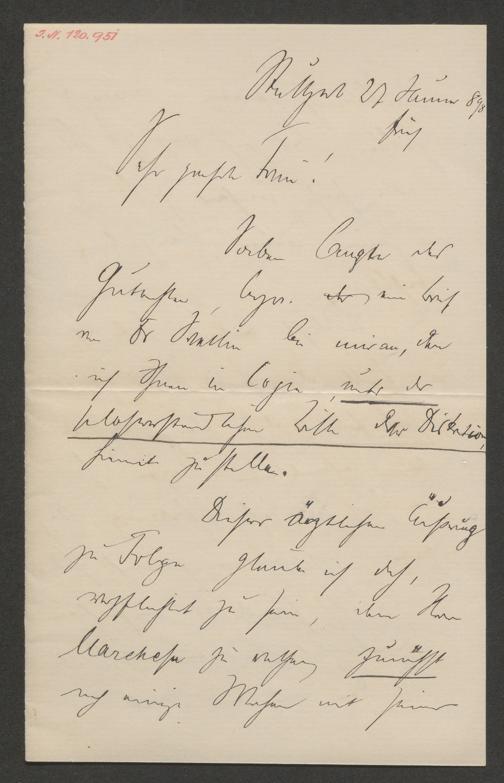 J.N. 120.951
Stuttgart 27 Jänner 898
früh
Sehr geehrte Frau!
Soeben langte das
Gutachten, bezw. ein Brief
von Dr bei mir an, den
ich Ihnen in Copie, unter der
selbstverständlichen Bitte der Diskretion,
hiemit zustelle.
Dieser ärztlichen Äußerung
zu Folge glaube ich doch,
verpflichtet zu sein, dem Herrn
Marchese zu rathen, zunächst
noch einige Wochen mit seiner